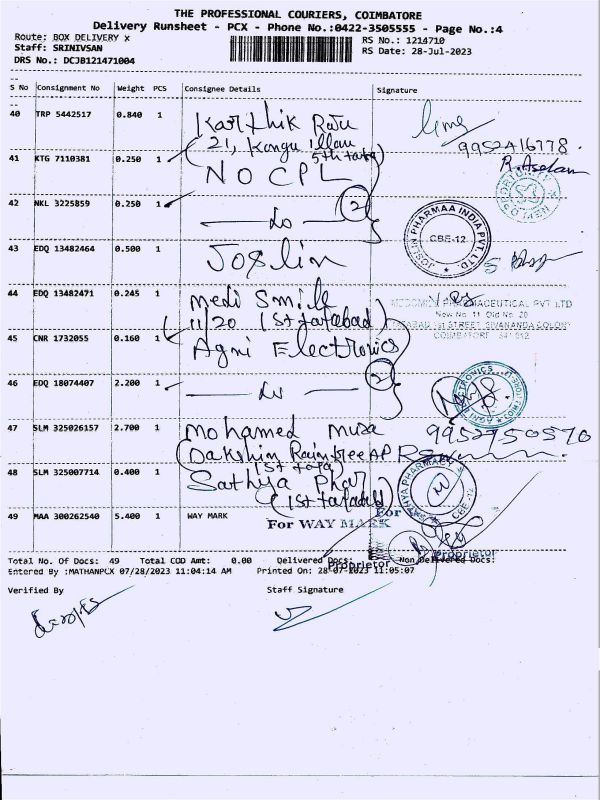 THE PROFESSIONAL COURIERS, COIMBATORE
Delivery Runsheet - PCX - Phone No.:0422-3505555 - Page No.:4
Route: BOX DELIVERY x RS No.: 1214710
Staff: SRINIVSAN RS Date: 28-Jul-2023
DRS No.: DCJB121471004
S No Consignment No Weight PCS Consignee Details Signature
40 TRP 5442517 0.840 1 Karthik Raju
9952416778
21, Kongu illam
5th
41 KTG 7110381 0.250 1 NO CPL
R.
42 NKL 3225859 0.250 1 — Do — 2
JOSLIN PHARMAA INDIA PVT. LTD. CBE-12
43 EDQ 13482464 0.500 1 Joslin
44 EDQ 13482471 0.245 1 Medi
PHARMACEUTICAL PVT LTD
11/20 1st tatabad
New No 11 Old No 20
1st STREET, SIVANANDA COLONY
COIMBATORE 641 012
45 CNR 1732055 0.160 1 Agni Electronics
46 EDQ 18074407 2.200 1 — Do —
47 SLM 325026157 2.700 1 Mohamed Musa 9952750570
Dakshin Raintree AP
1st tata
48 SLM 325007714 0.400 1 Sathya Phar
1st tatabad
PHARMACY CBE-12
49 MAA 300262540 5.400 1 WAY MARK
For WAY MARK
For
Proprietor
Proprietor
Total No. Of Docs: 49 Total COD Amt: 0.00 Delivered Docs: Non Delivered Docs:
Entered By :MATHANPCX 07/28/2023 11:04:14 AM Printed On: 28-07-2023 11:05:07
Verified By Staff Signature